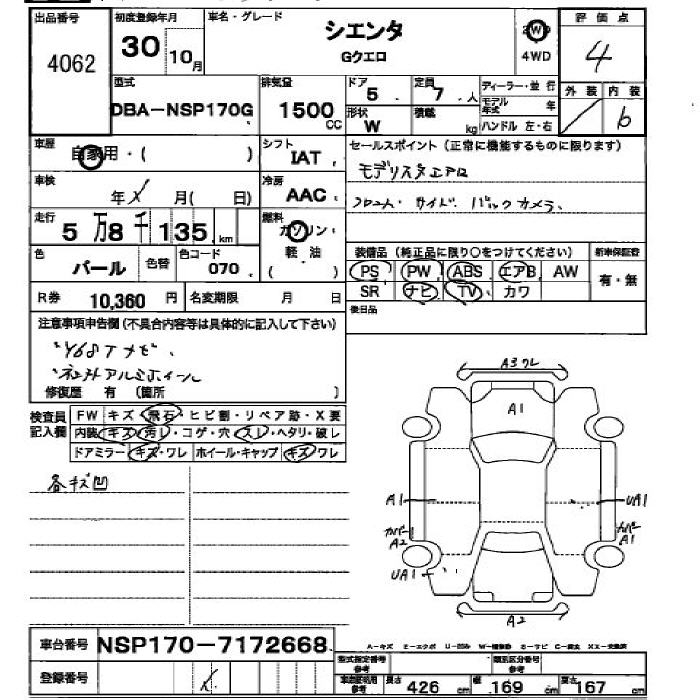 出品番号 初度登録年月 車名・グレード 評価点
4062 30 10月 シエンタ Gクエロ 2WD 4WD 4
型式 排気量 ドア 定員 ディーラー・並行 外装 内装
DBA-NSP170G 1500 CC 5 7人 モデル年式 年 b
形状 積載 ハンドル 左・右
W kg
車歴 自家用・( ) シフト IAT セールスポイント (正常に機能するものに限ります)
モデリスタエアロ
車検 年 月( 日) 冷房 AAC
フロント・サイド バックカメラ、
走行 5万8千135km 燃料 ガソリン・軽油 ( )
色 パール 色替 色コード 070 装備品 (純正品に限り○をつけてください) 新車保証書
PS PW ABS エアB AW 有・無
SR ナビ TV カワ
R券 10,360円 名変期限 月 日 後日品
注意事項申告欄(不具合内容等は具体的に記入して下さい)
Y68Tナビ、
社外アルミホイール
修復歴 有 (箇所 )
検査員記入欄 FW キズ・飛石・ヒビ割・リペア跡・X要
内装 キズ・汚レ・コゲ・穴・スレ・ヘタリ・破レ
ドアミラー キズ・ワレ ホイール・キャップ キズ・ワレ
各キズ凹
A3ワレ
A1
A1 UA1
カバー A2 カバー A1
UA1
A2
車台番号 NSP170-7172668
A-キズ E-エクボ U-凹み W-補修跡 S-サビ C-腐食 XX-交換済
登録番号 型式指定番号 参考 類別区分番号 参考
車庫証明用 参考 長さ 426 cm 幅 169 cm 高さ 167 cm